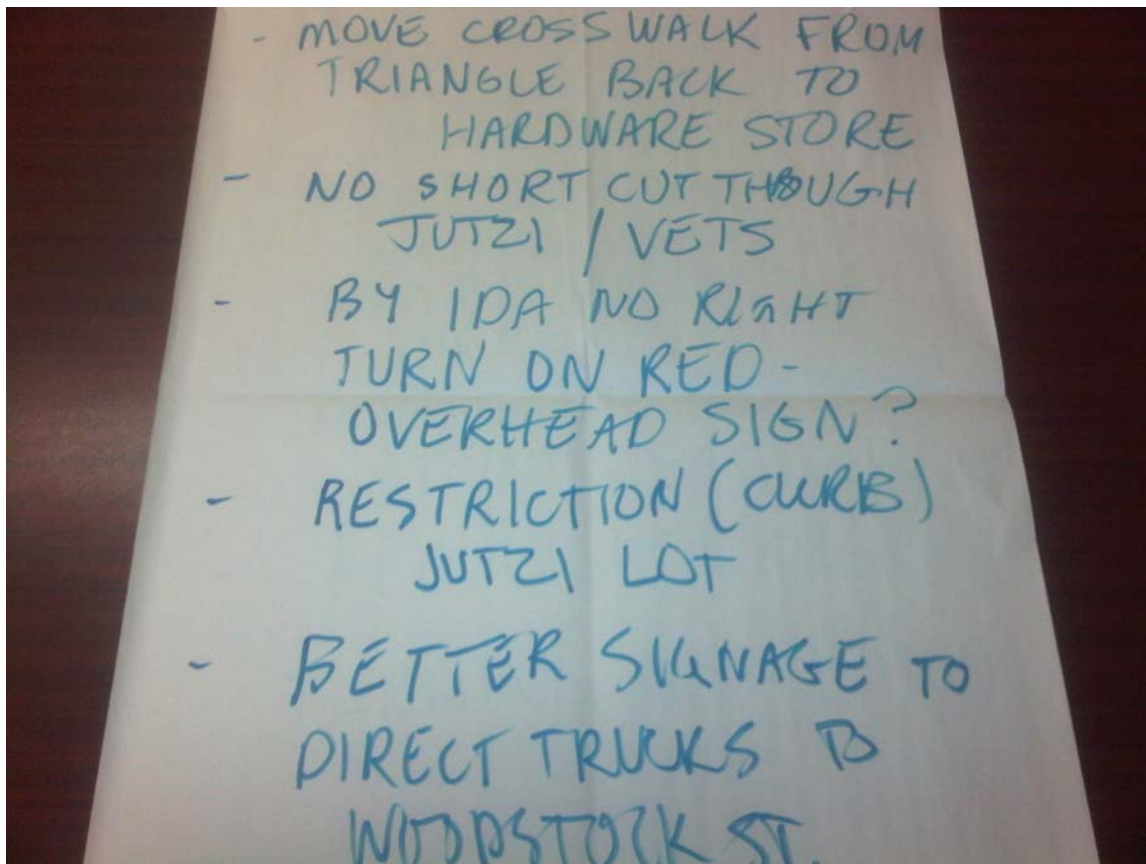 - MOVE CROSSWALK FROM
TRIANGLE BACK TO
HARDWARE STORE
- NO SHORT CUT THROUGH
JUTZI / VETS
- BY IDA NO RIGHT
TURN ON RED -
OVERHEAD SIGN?
- RESTRICTION (CURB)
JUTZI LOT
- BETTER SIGNAGE TO
DIRECT TRUCKS TO
WOODSTOCK ST.